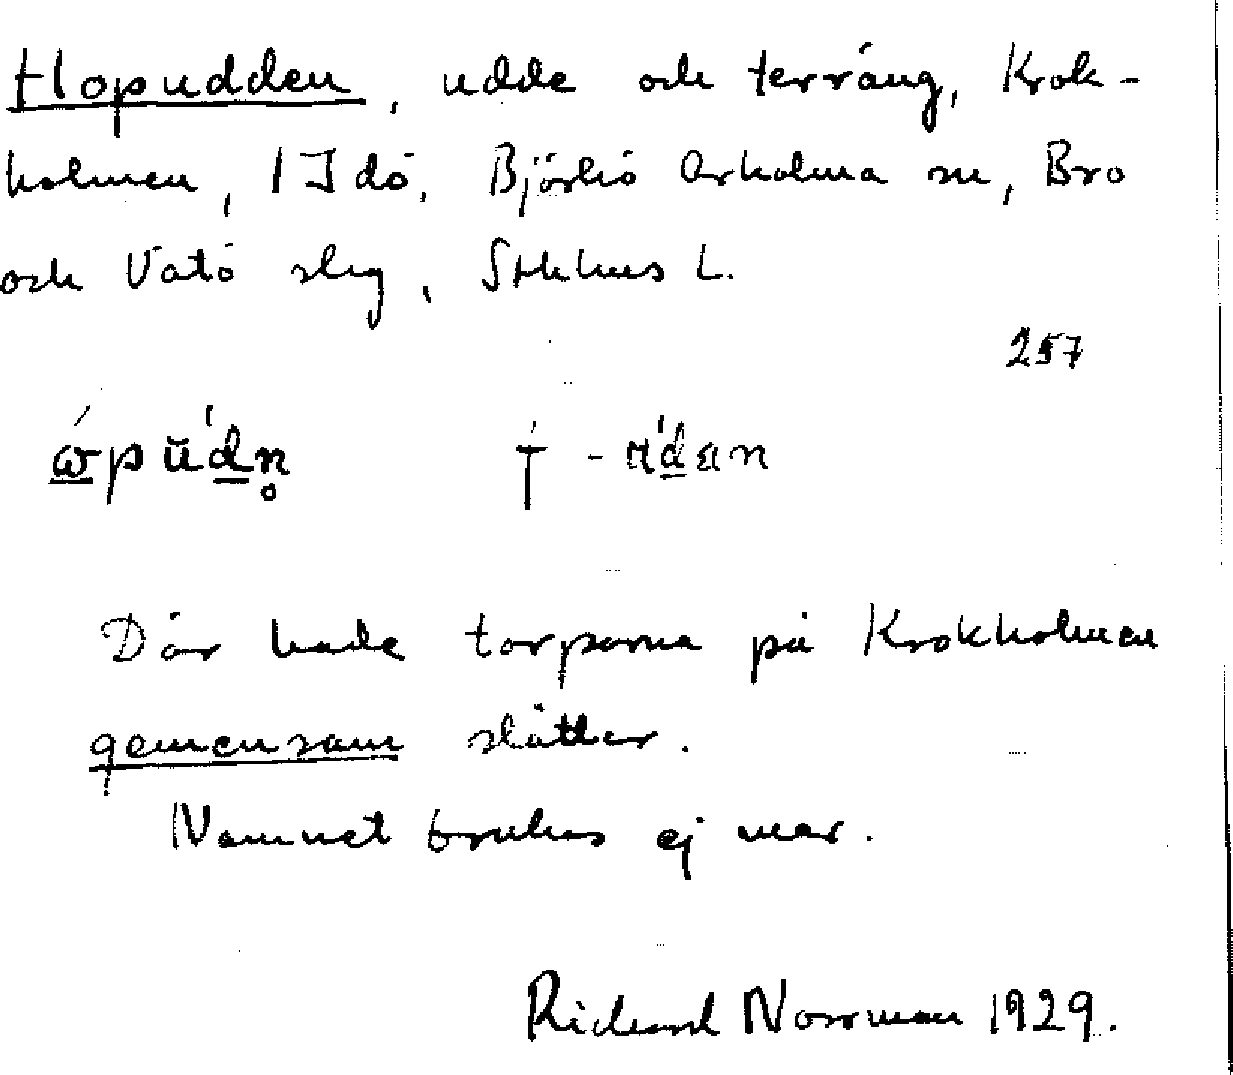 Hopudden, udde och terräng, Krok-
holmen, 1 Idö, Björkö Arholma sn, Bro
och Vätö slg, Sthlms L.
257
ώpŭ́dn̥ † - ŭ́dan
Där hade torparna på Krokholmen
gemensam slåtter.
Namnet brukas ej mer.
Rickard Norrman 1929.